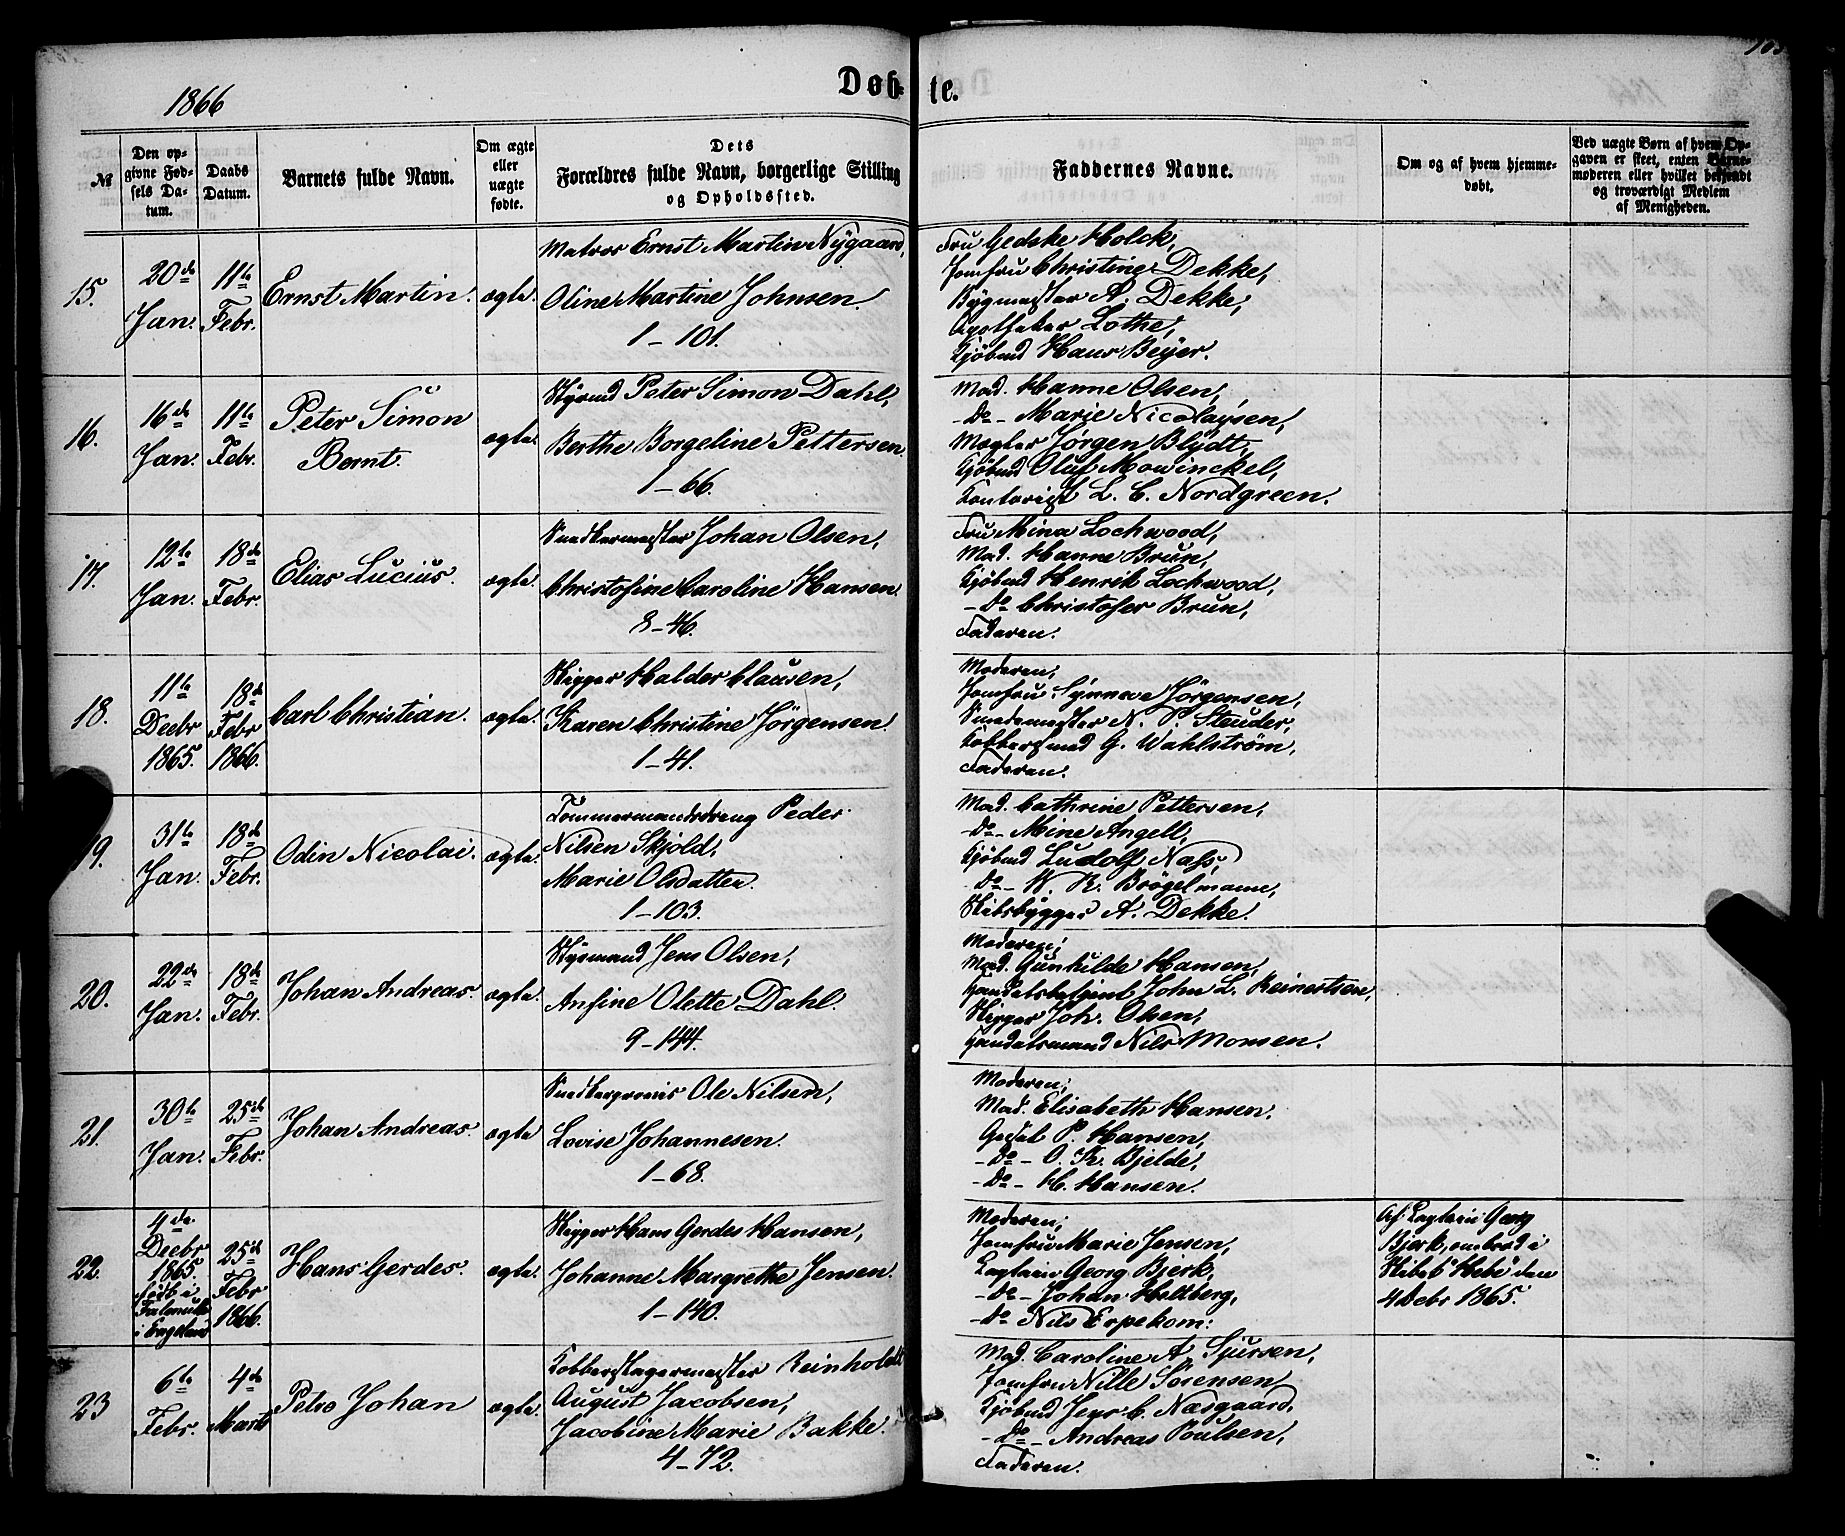 1866
Døb-
te.
№
Den op-
givne Fød-
sels Da-
tum.
Daabs
Datum.
Barnets fulde Navn.
Om ægte
eller
uægte
fødte.
Dets
Forældres fulde Navn, borgerlige Stilling
og Opholdssted.
Faddernes Navne.
Om og af hvem hjemme-
døbt.
Ved uægte Børn af hvem Op-
gaven er skeet, enten Barne-
moderen eller hvilket bekjendt
og troværdigt Medlem
af Menigheden.
15.
20de
Jan.
11te
Febr.
Ernst Martin.
ægte.
Matros Ernst Martin Nygaard,
Oline Martine Johnsen.
1-101.
Fru Gedske Holck,
Jomfru Christine Dekke,
Bygmester A. Dekke,
Apotheker Lothe,
Kjøbmd Hans Beyer.
16.
16de
Jan.
11te
Febr.
Peter Simon
Bernt.
ægte.
Styrmd Peter Simon Dahl,
Berthe Borgeline Pettersen.
1-66.
Mad. Hanne Olsen,
-Do- Marie Nicolaysen,
Mægler Jørgen Blydt,
Kjøbmd Oluf Mowinckel,
Kontorist L. C. Nordgreen.
17.
12te
Jan.
18de
Febr.
Elias Lucius.
ægte.
Snedkermester Johan Olsen,
Christofine Caroline Hansen.
8-46.
Fru Mina Lochwood,
Mad. Hanne Brun,
Kjøbmd Henrik Lochwood,
-Do Christofer Brun,
Faderen.
18.
11te
Decbr
1865.
18de
Febr
1866.
Carl Christian.
ægte.
Skipper Halder Clausen,
Karen Christine Jørgensen.
1-41.
Moderen,
Jomfru Synneve Jørgensen,
Smedemester N. P. Steuder,
G. Wahlström,
Faderen.
19.
31te
Jan.
18de
Febr.
Odin Nicolai.
ægte.
Tømmermandsdreng Peder
Nilsen Skjold,
Marie Olsdatter.
1-103.
Mad. Cathrine Pettersen,
-Do- Mine Angell,
Kjøbmd Ludolf Næss,
-Do- W. R. Brøgelmann,
Skibsbygger A. Dekke.
20.
22de
Jan.
18de
Febr.
Johan Andreas.
ægte.
Styrmand Jens Olsen,
Anfine Olette Dahl.
9-144.
Moderen;
Mad. Gunhilde Hansen,
Handelsbetjent John L. Reinertsen,
Skipper Joh. Olsen,
Handelsmand Nils Monsen.
21.
30te
Jan.
25de
Febr.
Johan Andreas.
ægte
Snedkersvend Ole Nilsen,
Lovise Johannesen.
1-68.
Moderen;
Mad. Elisabeth Hansen,
P. Hansen,
-Do- O. K. Bjelde,
-Do- H. Hansen.
22.
4de
Decbr
1865.
født i
Falmuth
i England
25de
Febr
1866.
Hans Gerdes.
ægte.
Skipper Hans Gerdes Hansen,
Johanne Margrethe Jensen.
1-140.
Moderen;
Jomfru Marie Jensen,
Captain Georg Bjerk,
-Do- Johan Holdberg,
-Do Nils Erpekom:
Af Captain Georg
Bjerk, ombord i
Skibet "Hebe" den
4 Debr 1865.
23
6te
Febr.
4de
Marts
Petro Johan
ægte.
Kobberslagermester Reinholdt
August Jacobsen,
Jacobine Marie Bakke.
4-72.
Mad. Caroline A. Sjursen,
Jomfru Nille Sørensen
Kjøbmd Jens C. Næsgaard,
-Do- Andreas Poulsen,
Faderen.